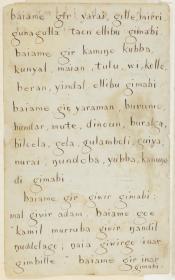 baiame gīr yarai, gille, mirri,
gunagulla taon ellibu gimabi
baiame gir kamine kubba,
kunyal, maian, tulu, wi, kolle,
beran, yindal ellibu gimabi
baiame gir yaraman, burumo,
bundar, mute, dinoun, buralga,
biloela, gela, gulamboli, guiya,
murai, nundoba, yubba, kanuno
di gimabi
baiame gir giwir gimabi;
mal giwir adam, baiame goe
"kamil murruba giwir nandil
nuddelago; naia giwirgo inar
gimbille" baiame gir inar
gimabi.